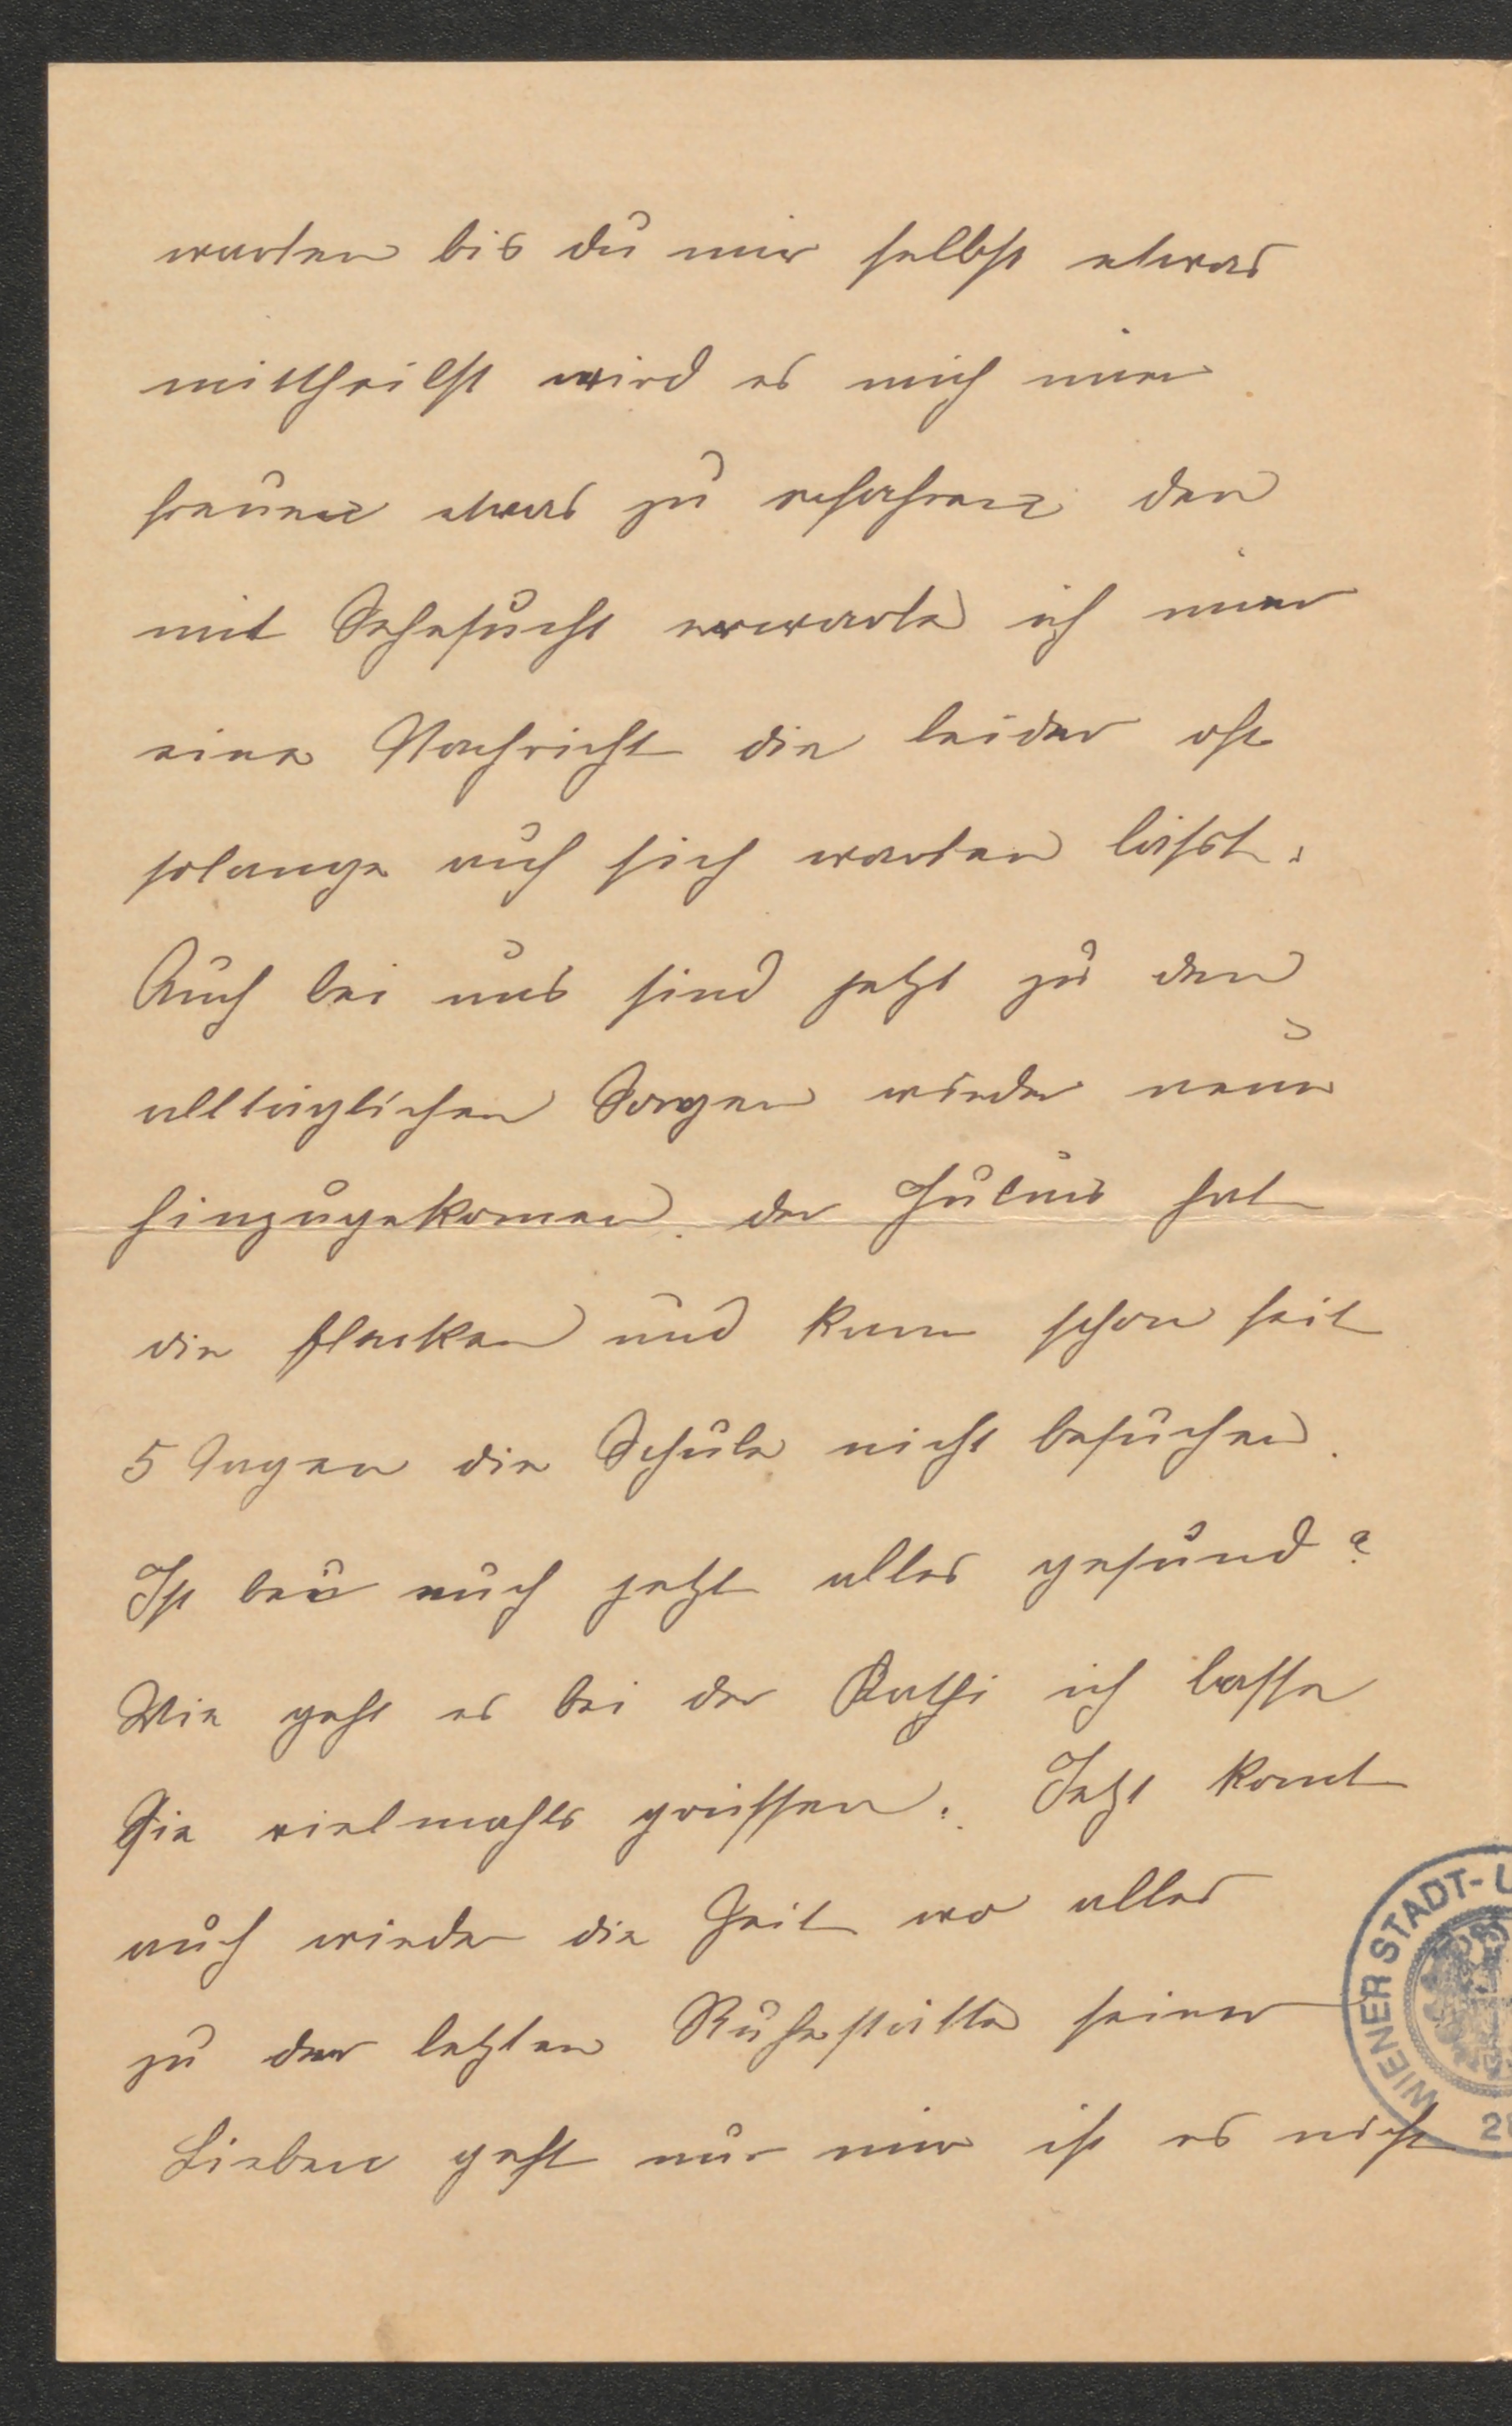 warten bis du mir selbst etwas
mittheilst wird es mich imer
freuen etwas zu erfahren den
mit Sehnsucht erwarte ich imer
eine Nachricht die leider oft
solange auf sich warten lässt.
Auch bei uns sind jetzt zu den
alltäglichen Sorgen wieder neue
hinzugekomen. der Julius hat
die flecken und kann schon seit
5 Tagen die Schule nicht besuchen.
Ist bei euch jetzt alles gesund?
Wie geht es bei der Kathi ich lasse
Sie vielmahls grüssen. Jetzt komt
auch wieder die Zeit wo alles
zu der letzten Ruhestätte seiner
Lieben geht nur mir ist es nicht
WIENER STADT-